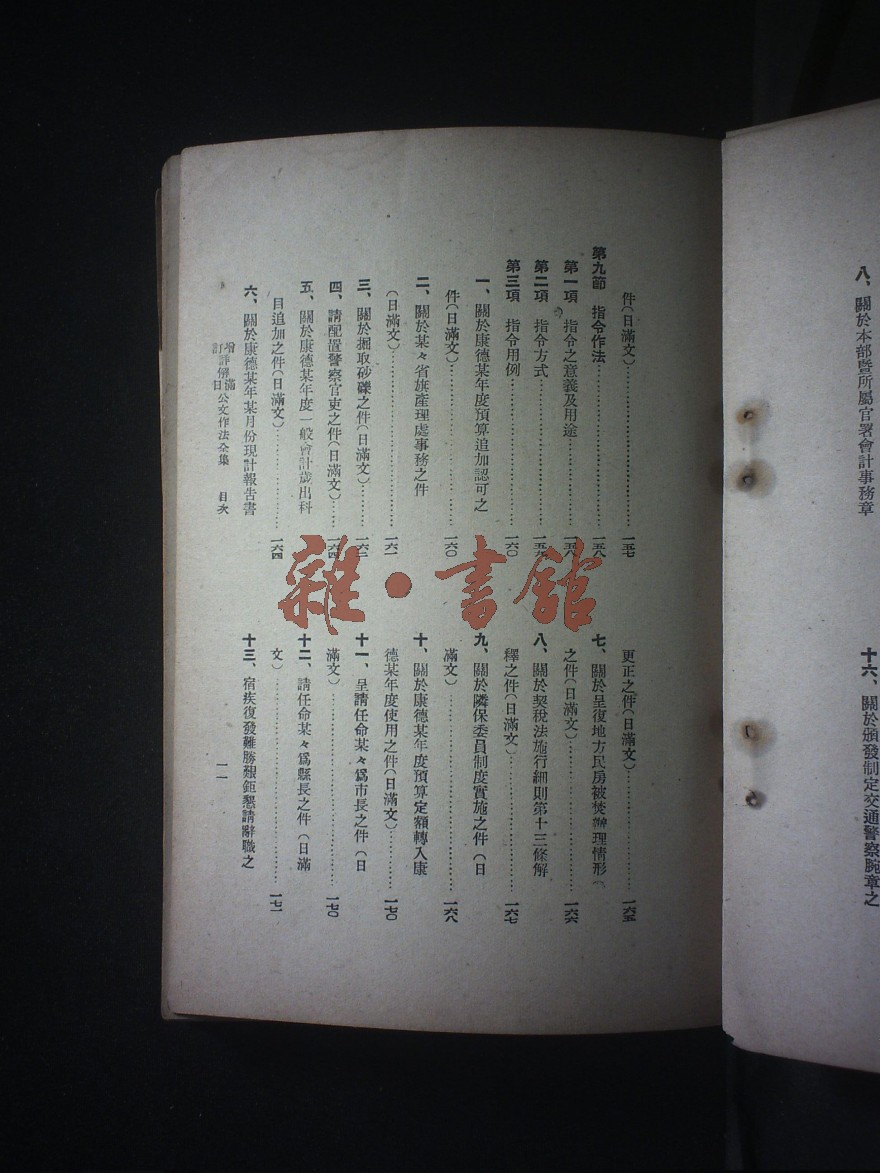 八、關於本部暨所屬官署會計事務章
十六、關於頒發制定交通警察腕章之
件(日滿文)……一五七
第九節　指令作法……一五八
第一項　指令之意義及用途……一五八
第二項　指令方式……一五九
第三項　指令用例……一六〇
一、關於康德某年度預算追加認可之
件(日滿文)……一六〇
二、關於某々省旗產理處事務之件
(日滿文)……一六一
三、關於掘取砂礫之件(日滿文)……一六二
四、請配置警察官吏之件(日滿文)……一六四
五、關於康德某年度一般會計歲出科
目追加之件(日滿文)……一六四
六、關於康德某年某月份現計報告書
更正之件(日滿文)……一六五
七、關於呈復地方民房被焚辦理情形
之件(日滿文)……一六六
八、關於契稅法施行細則第十三條解
釋之件(日滿文)……一六七
九、關於隣保委員制度實施之件(日
滿文)……一六八
十、關於康德某年度預算定額轉入康
德某年度使用之件(日滿文)……一七〇
十一、呈請任命某々爲市長之件(日
滿文)……一七〇
十二、請任命某々爲縣長之件(日滿
文)……一七一
十三、宿疾復發難勝艱鉅懇請辭職之
增訂詳解滿日公文作法全集　目次
一一
雜·書館